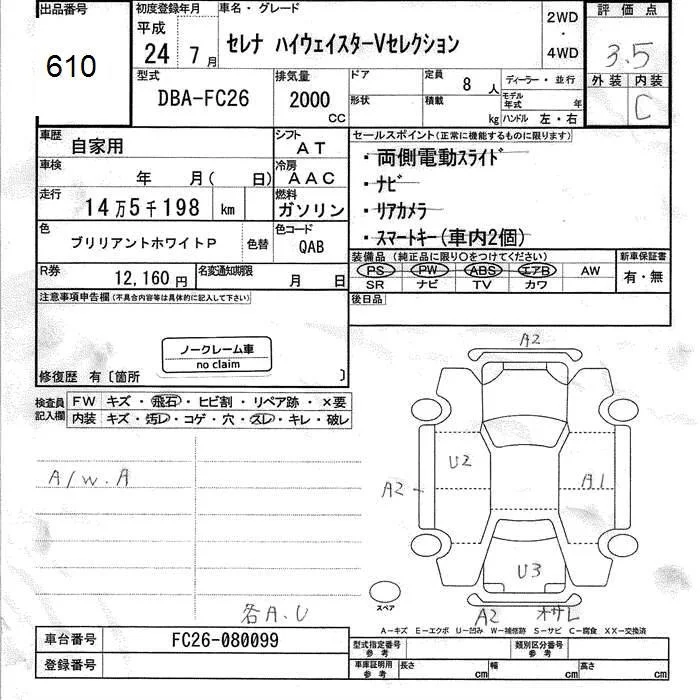 出品番号 初度登録年月 車名・グレード 2WD ・ 4WD 評価点
610 平成 24 7月 セレナ ハイウェイスターVセレクション 3.5
型式 排気量 ドア 定員 8人 ディーラー・並行 外装 内装
DBA-FC26 2000 CC 形状 積載 kg モデル年式 年 C
ハンドル 左・右
車歴 自家用 シフト AT セールスポイント(正常に機能するものに限ります)
車検 年 月( 日) 冷房 AAC ・両側電動スライド
走行 14万5千198 km 燃料 ガソリン ・ナビ
・リアカメラ
色 ブリリアントホワイトP 色替 色コード QAB ・スマートキー(車内2個)
R券 12,160円 名変通知期限 月 日 装備品(純正品に限り○をつけてください) 新車保証書
PS PW ABS エアB AW 有・無
SR ナビ TV カワ
注意事項申告欄(不具合内容等は具体的に記入して下さい) 後日品
ノークレーム車
no claim
修復歴 有〔箇所 〕
検査員記入欄 FW キズ・飛石・ヒビ割・リペア跡・×要
内装 キズ・汚レ・コゲ・穴・スレ・キレ・破レ
A2
A/W.A
U2 A1
A2
U3
スペア
各A.U A2 オサレ
A-キズ E-エクボ U-凹み W-補修跡 S-サビ C-腐食 XX-交換済
車台番号 FC26-080099 型式指定番号 参考 類別区分番号 参考
登録番号 車庫証明用 参考 長さ cm 幅 cm 高さ cm